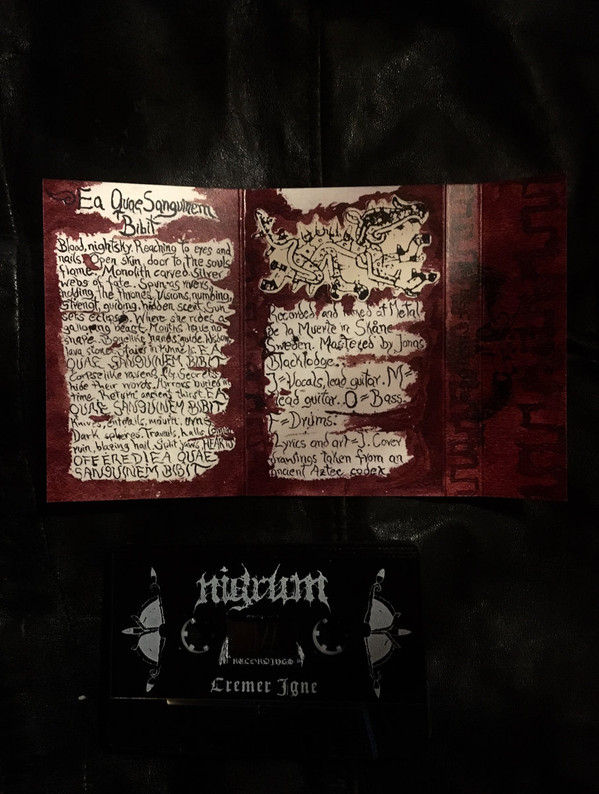 Ea Quae Sanguinem
Bibit
Blood, nightsky. Reaching to eyes and
nails. Open skin, door to the souls
flame. Monolith carved silver
webs of fate. Spun as rivers,
holding. The thrones. Visions, numbing,
strenght, guiding, hidden scent. Sun
sets eclipse. Where she rides
galloping beast. Mouths have no
shape. Boneills hands guide.
lava stones. Stairs in tunnels. EA
QUAE SANGUINEM BIBIT
Corpse like ravens fly. Secrets
hide their words. Mirrors buried in
time. Return ancient thirst. EA
QUAE SANGUINEM BIBIT
Knives, entrails, mouth, urns
Dark spheres. Travails, kalla
ruin, blazing hail. Split jaw, HEART
OFFERED! EA QUAE
SANGUINEM BIBIT
Recorded and mixed at Metal
de la Muerte in Skåne
Sweden. Mastered by Jonas
Blacklodge.
J = Vocals, lead guitar. M=
lead guitar. O = Bass.
= Drums.
Lyrics and art = J. Cover
drawings taken from an
ancient Aztec codex
nigrum
RECORDINGS
Cremer Igne